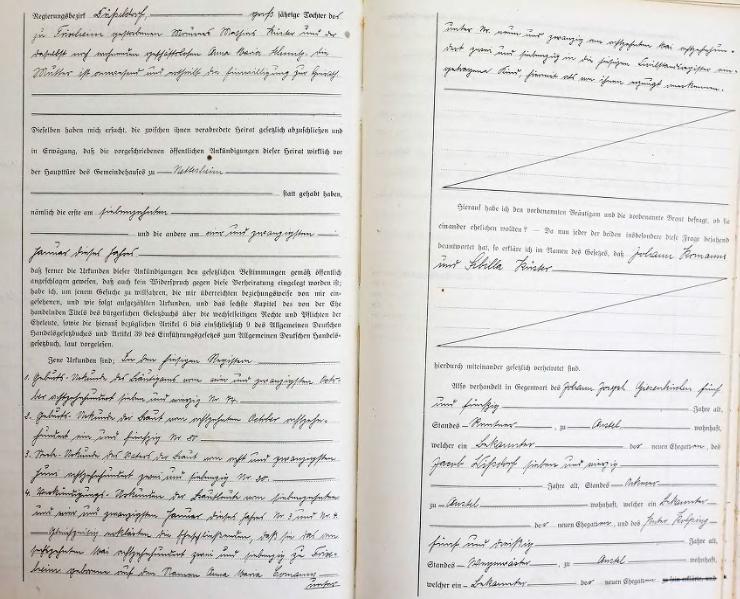 Regierungsbezirk Düsseldorf, groß jährige Tochter des
zu Frixheim verstorbenen Mathias Küster und der
daselbst noch wohnenden geschäftslosen Anna Maria. Die
Mutter ist anwesend und ertheilt die Einwilligung zur Heirath.
Dieselben haben mich ersucht, die zwischen ihnen verabredete Heirat gesetzlich abzuschließen und
in Erwägung, daß die vorgeschriebenen öffentlichen Ankündigungen dieser Heirat wirklich vor
der Hauptthüre des Gemeindehauses zu Nettesheim
statt gehabt haben,
nämlich die erste am siebenzehnten
und die andere am vier und zwanzigsten
Januar dieses Jahres
daß ferner die Urkunden dieser Ankündigungen den gesetzlichen Bestimmungen gemäß öffentlich
angeschlagen gewesen, daß auch kein Widerspruch gegen diese Verheiratung eingelegt worden ist;
habe ich, um jenem Gesuche zu willfahren, die mir überreichten beziehungsweise von mir ein-
gesehenen, und wie folgt aufgezählten Urkunden, und das sechste Kapitel des von der Ehe
handelnden Titels des bürgerlichen Gesetzbuchs über die wechselseitigen Rechte und Pflichten der
Eheleute, sowie die hierauf bezüglichen Artikel 6 bis einschließlich 9 des Allgemeinen Deutschen
Handelsgesetzbuches und Artikel 39 des Einführungsgesetzes zum Allgemeinen Deutschen Handels-
gesetzbuch, laut vorgelesen.
Jene Urkunden sind: In den hiesigen Registern
1. Geburts-Urkunde des Bräutigams vom vier und zwanzigsten Octo-
ber achtzehnhundert sieben und vierzig Nr.
2. Geburts-Urkunde der Braut vom achtzehnten October achtzehn-
hundert ein und fünfzig Nr.
3. Sterbe-Urkunde des Vaters der Braut vom acht und zwanzigsten
Juni achtzehnhundert zwei und siebenzig Nr. 30.
4. Verkündigungs-Urkunden der Brautleute vom siebenzehnten
und vier und zwanzigsten Januar dieses Jahres Nr. 3 und Nr. 4
Gleichzeitig erklärten die Eheschließenden, daß sie das am
achtzehnten Mai achtzehnhundert zwei und siebenzig zu Frix-
heim geborene auf den Namen Anna Maria Komanns
unter
unter Nr. neun und zwanzig am achtzehnten Mai achtzehnhun-
dert zwei und siebenzig in die hiesigen Civilstandsregister ein-
getragene Kind, hiermit als von ihnen erzeugt anerkennen.
Hierauf habe ich den vorbenannten Bräutigam und die vorbenannte Braut befragt, ob sie
einander ehelichen wollten? — Da nun jeder der beiden insbesondere diese Frage bejahend
beantwortet hat, so erkläre ich im Namen des Gesetzes, daß Johann Komanns
und Sibilla Küster
hierdurch miteinander gesetzlich verheiratet sind.
Also verhandelt in Gegenwart des Johann Joseph Gierenkirchen fünf
und fünfzig Jahre alt,
Standes Rentner, zu Anstel wohnhaft,
welcher ein Bekannter der neuen Ehegatten, des
Jacob Düssdorf sieben und vierzig
Jahre alt, Standes Ackerer
zu Anstel wohnhaft, welcher ein Bekannter
der neuen Ehegatten, und des Peter
fünf und dreißig Jahre alt,
Standes Wegewärter, zu Anstel wohnhaft,
welcher ein Bekannter der neuen Ehegatten